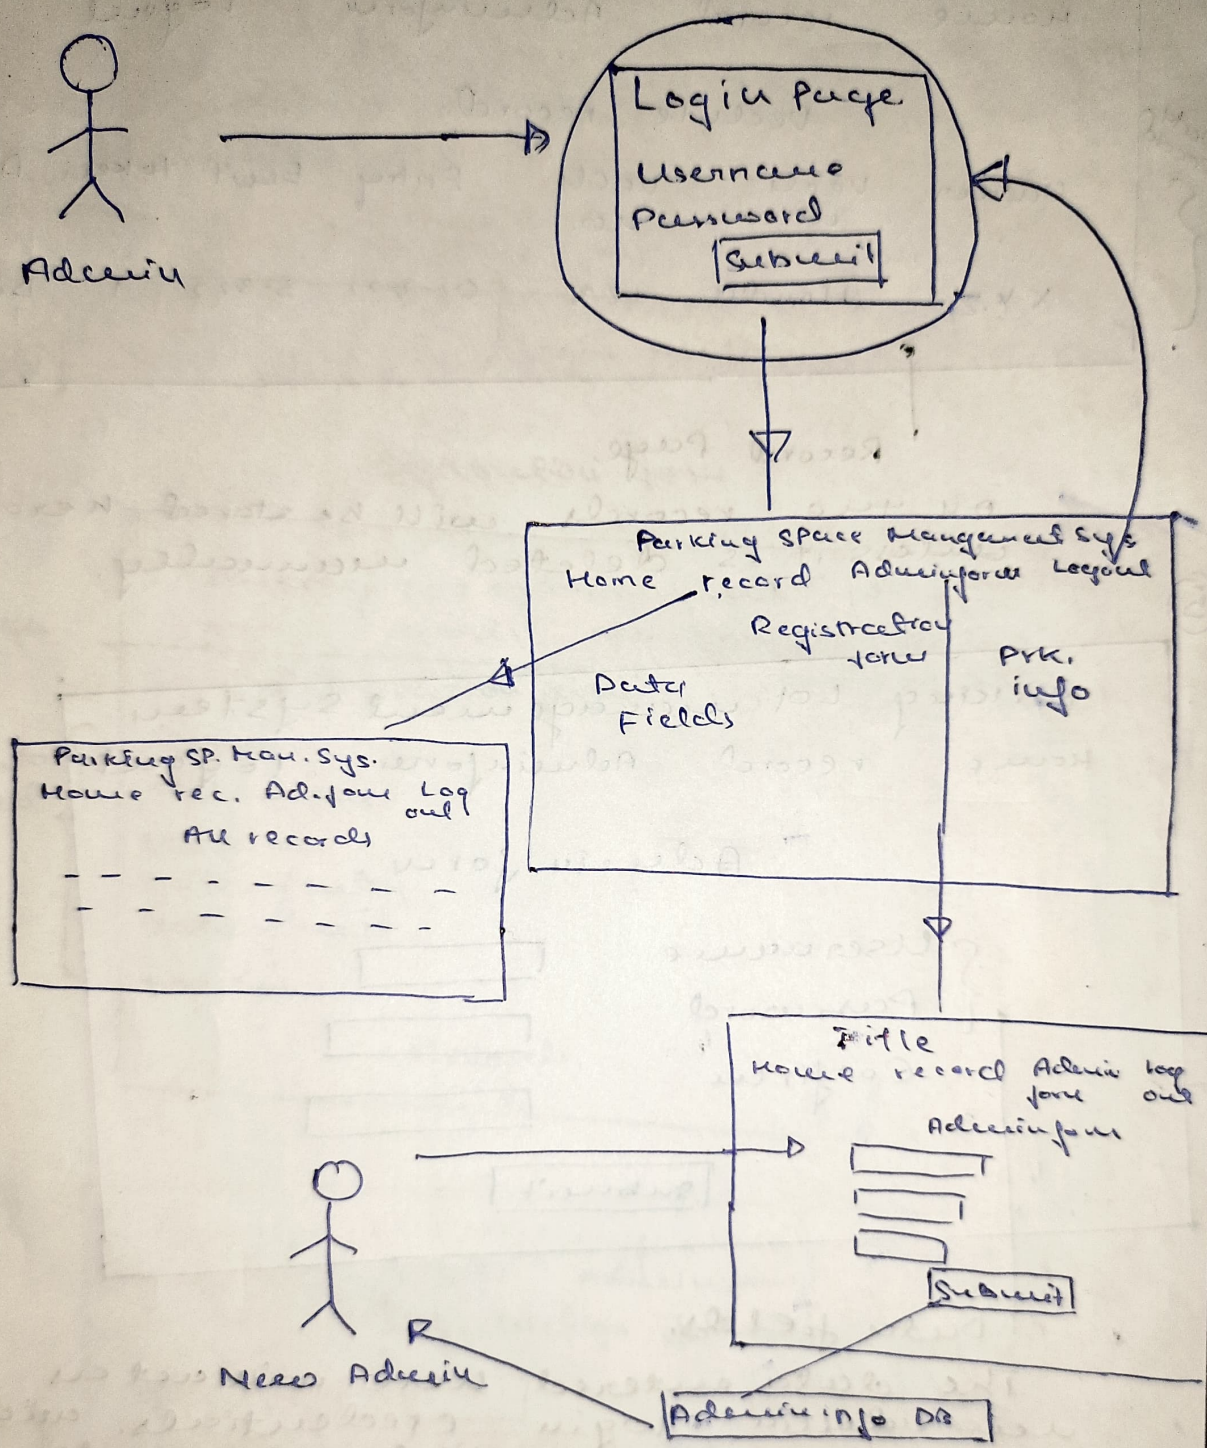 Login Page
Username
Password
Submit
Admin
Parking Space Mangament Sys
Home record Adminform Logout
Registration
form
Prk.
info
Data
Fields
Parking SP. Man. Sys.
Home rec. Ad.form Log
out
All records
Title
Home record Admin Log
form out
Adminform
Submit
New Admin
Admin info DB